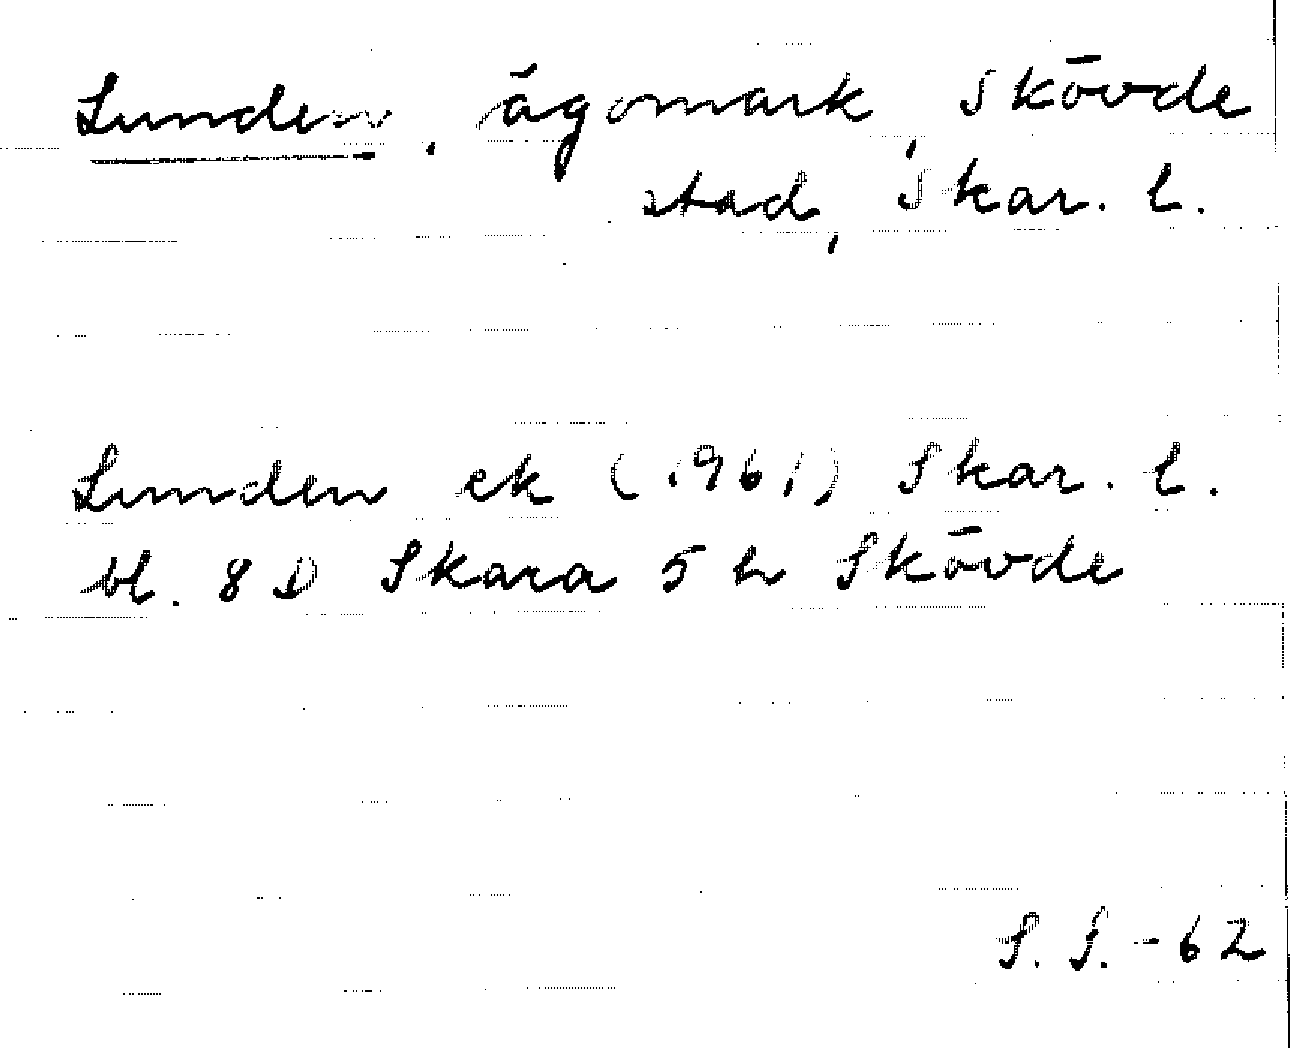 Lunden, ägomark, Skövde
stad, Skar. l.
Lunden ek (1961) Skar. l.
bl. 8 D Skara 5 h Skövde
S. S. -62